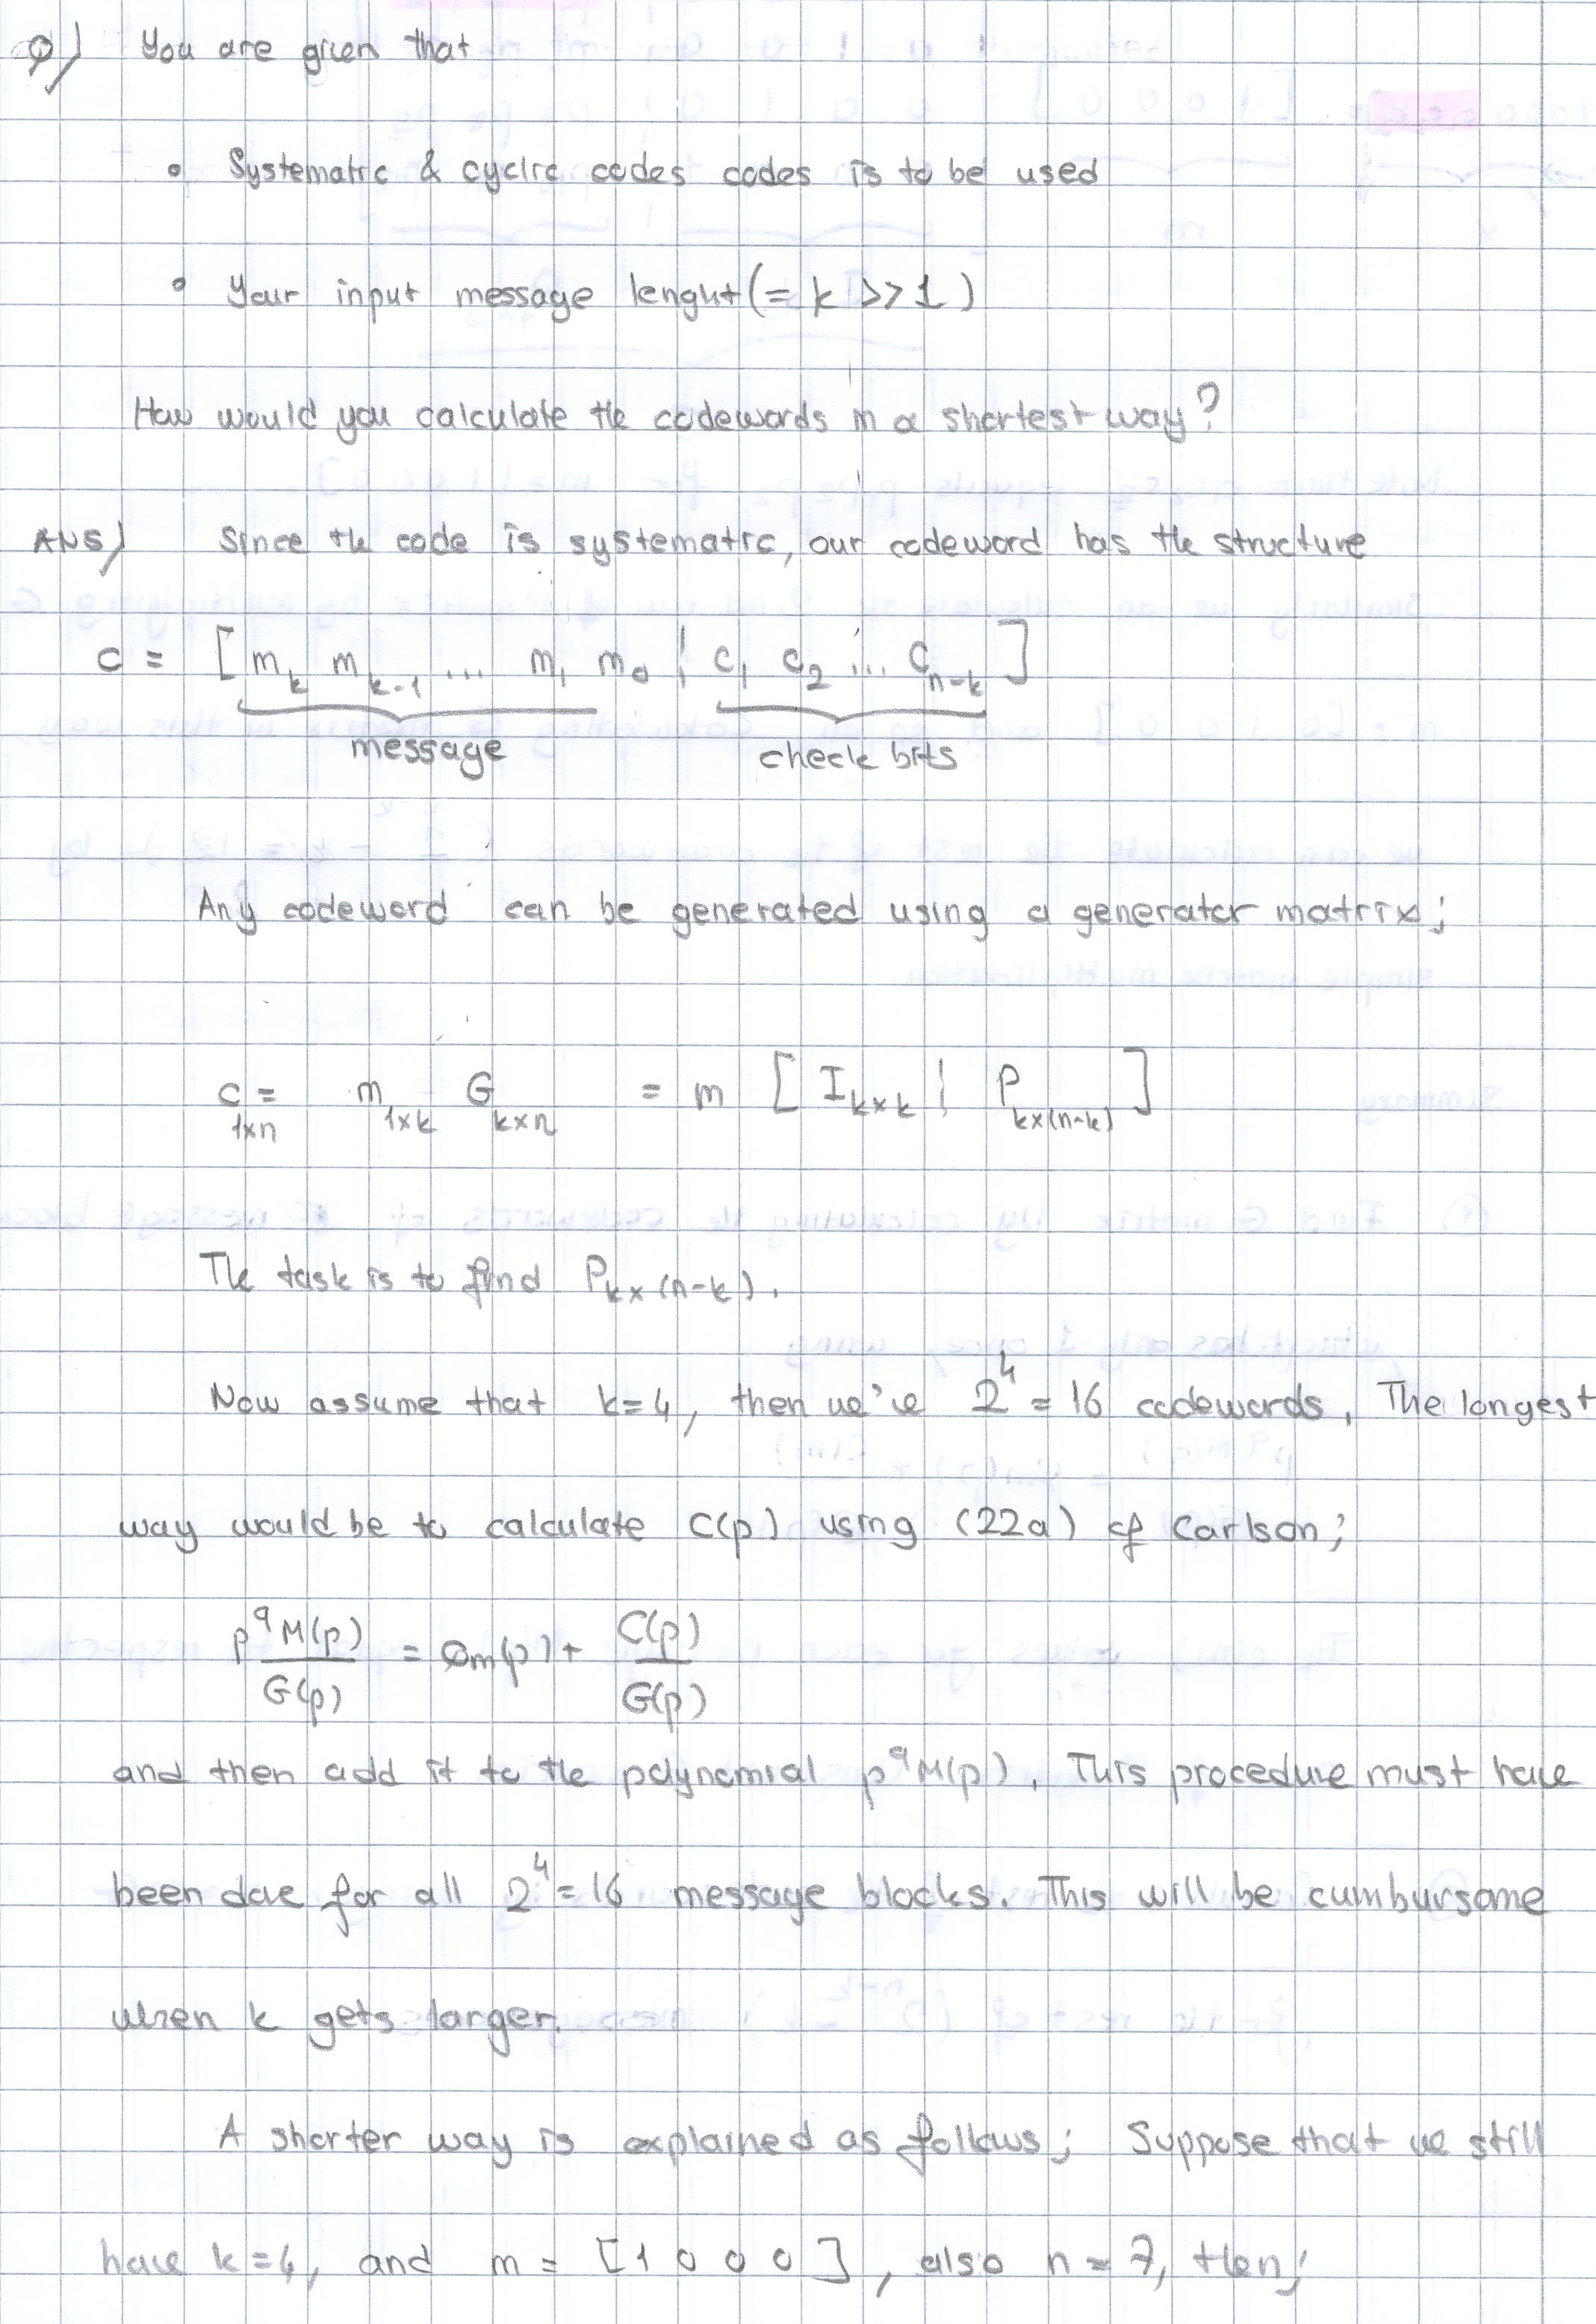 Q) You are given that
• Systematic & cyclic codes codes is to be used
• Your input message lenght (= k >> 1)
How would you calculate the codewords in a shortest way?
ANS) Since the code is systematic, our codeword has the structure
c = [ m_k m_{k-1} ... m_1 m_0 ¦ c_1 c_2 ... c_{n-k} ]
message check bits
Any codeword can be generated using a generator matrix;
c_{1xn} = m_{1xk} G_{kxn} = m [ I_{kxk} ¦ P_{kx(n-k)} ]
The task is to find P_{kx(n-k)}.
Now assume that k=4, then we've 2^4 = 16 codewords. The longest
way would be to calculate C(p) using (22a) of Carlson;
p^q M(p) / G(p) = Q_m(p) + C(p) / G(p)
and then add it to the polynomial p^q M(p). This procedure must have
been done for all 2^4 = 16 message blocks. This will be cumbursome
when k gets larger.
A shorter way is explained as follows; Suppose that we still
have k=4, and m = [1 0 0 0], also n = 7, then;